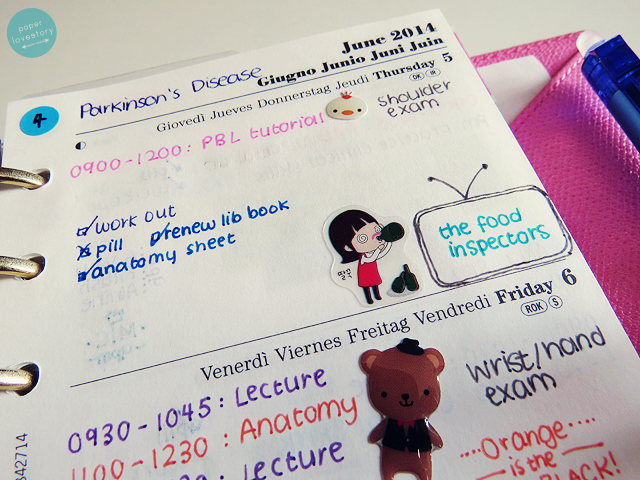 paper
lovestory
June 2014
Giugno Junio Juni Juin
4
Parkinson's Disease
Giovedì Jueves Donnerstag Jeudi Thursday 5
DK IR
shoulder
exam
0900-1200: PBL tutorial
work out
pill renew lib book
anatomy sheet
the food
inspectors
Venerdì Viernes Freitag Vendredi Friday 6
ROK S
wrist/hand
exam
0930-1045: Lecture
1100-1230: Anatomy
Lecture
....Orange....
is the
BLACK!
342714